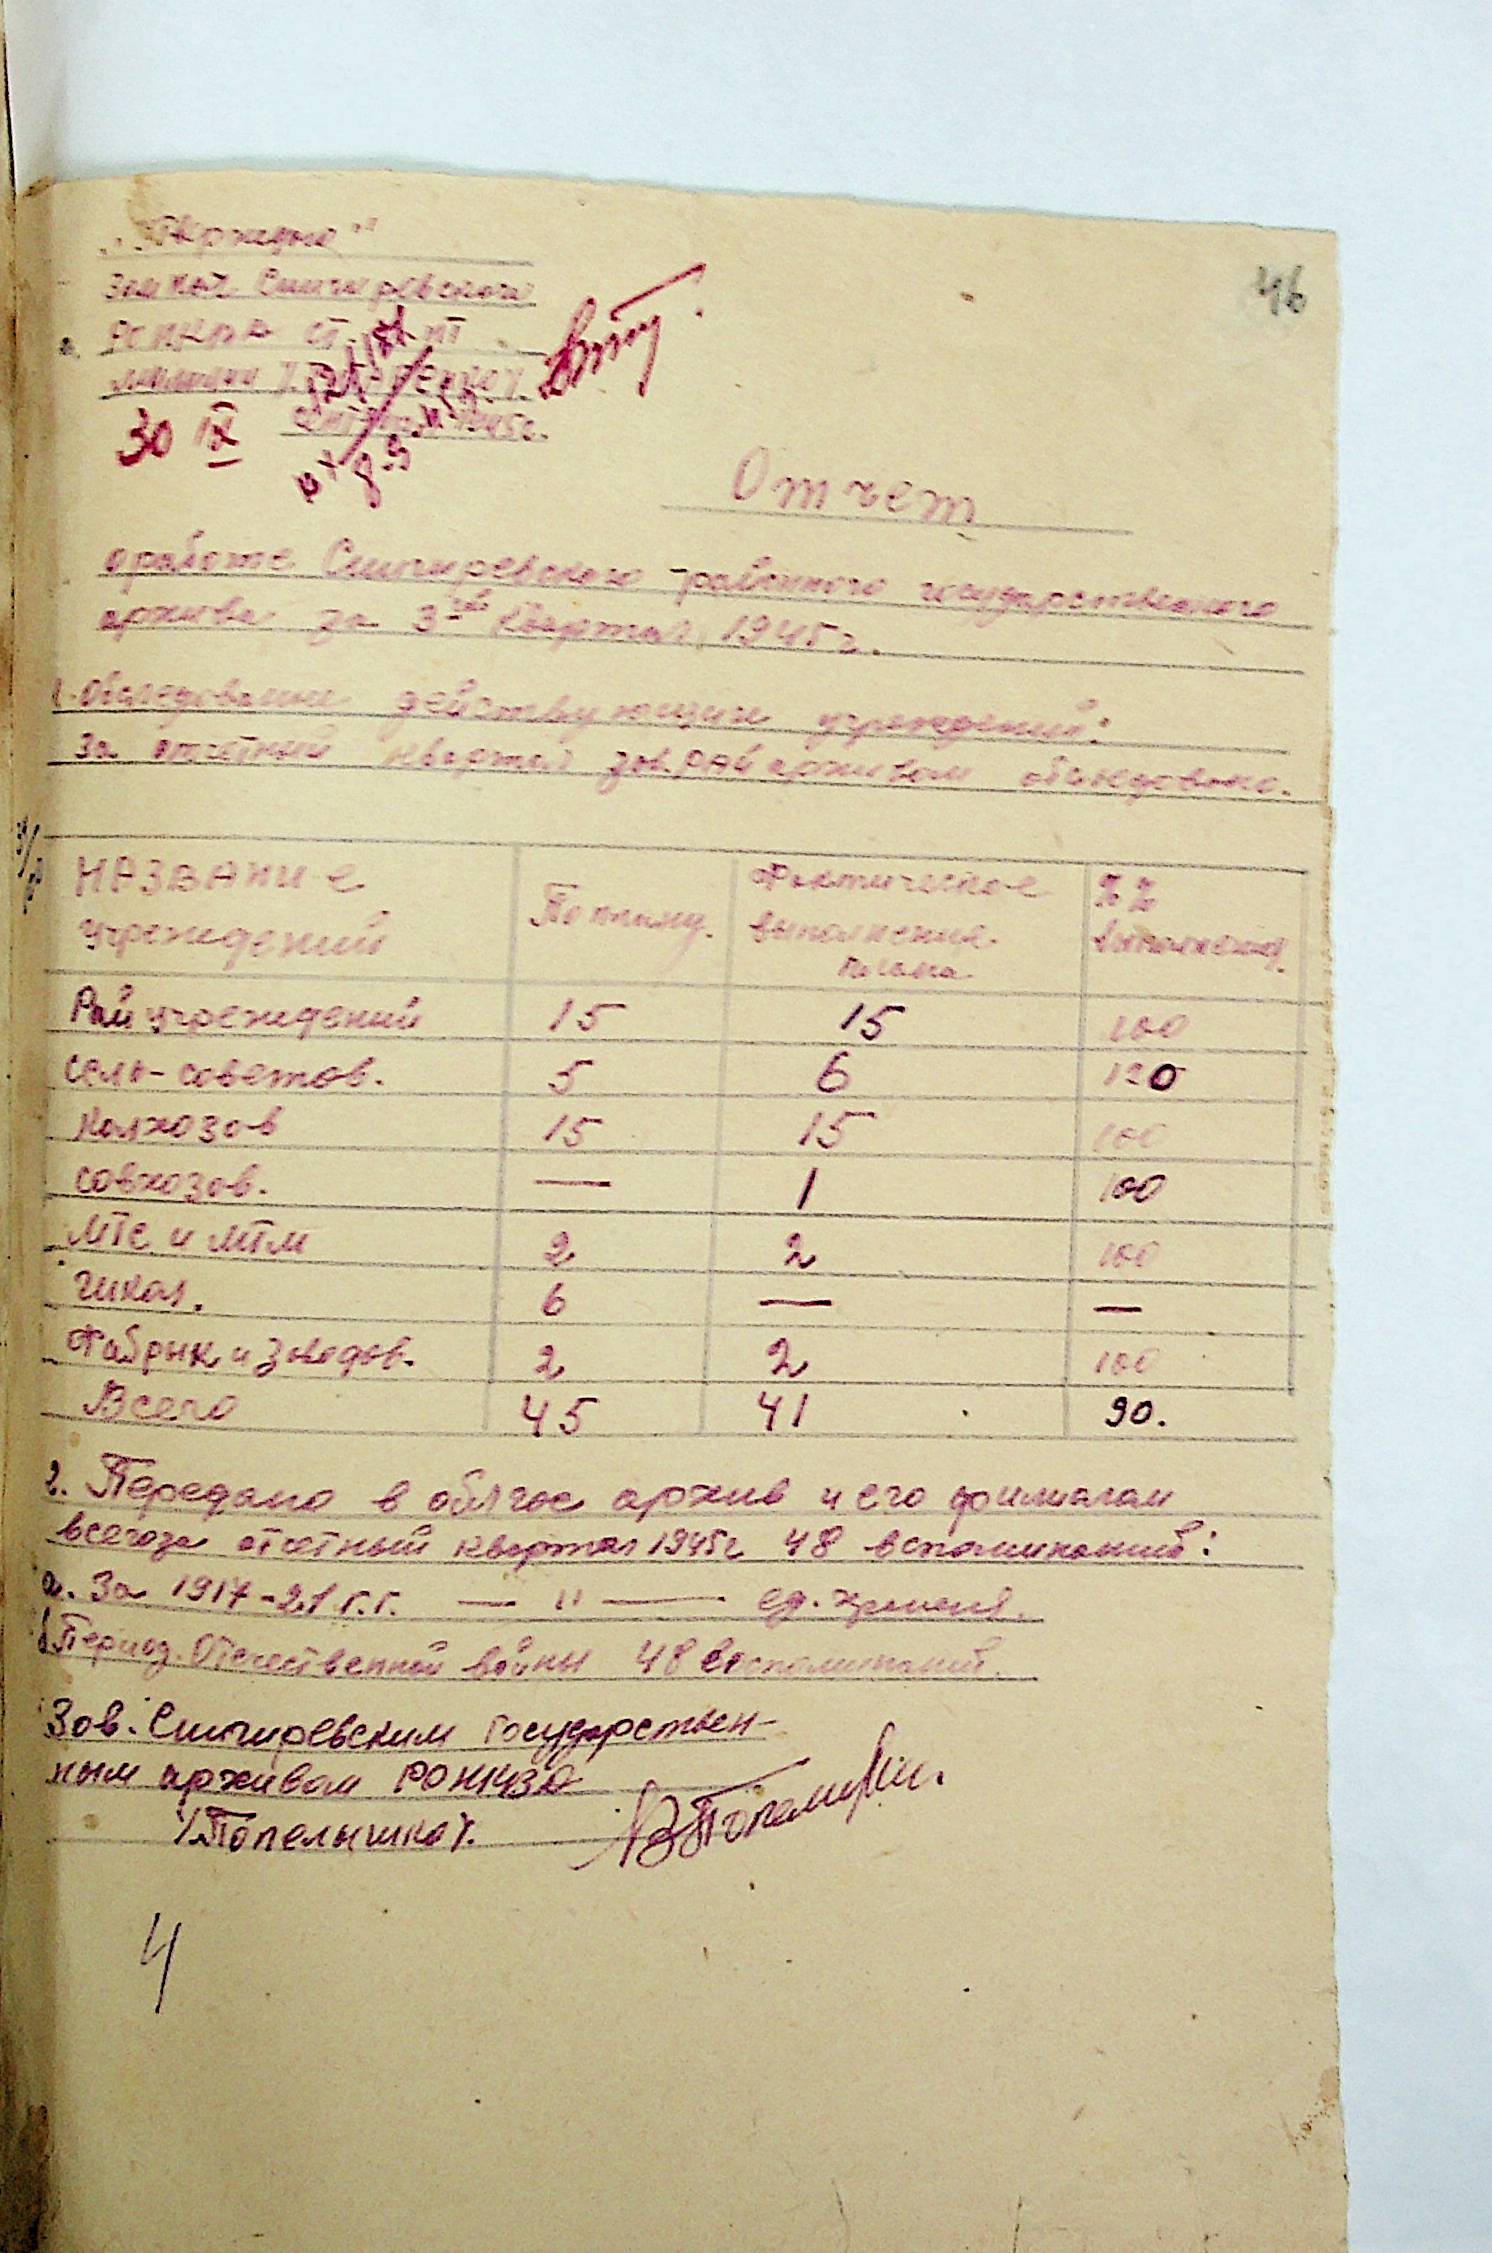 46
"Тверждаю"
Зам нач Снигиревского
РО НКВД ст. л-нт
милиции /ТИТАРЕНКО/.
30 IX 1945г.
Отчет
о работе Снигиревского районного государственного
архива за 3й квартал 1945 г.
1. Обследование действующих учреждений:
За отчетный квартал зав. РАЙ архивом обследовано.
НАЗВАНИЕ учреждений По плану. Фактическое выполнения плана %% выполнения.
Рай учреждений 15 15 100
Сель-советов. 5 6 120
Колхозов 15 15 100
Совхозов. — 1 100
МТС и МТМ 2 2 100
Школ. 6 — —
Фабрык и Заводов. 2 2 100
Всего 45 41 90.
2. Передано в облгос архив и его филиалам
всего за отчетный квартал 1945г 48 вспоминаний:
а. За 1917-21 г.г. — " — ед. хранен.
б. Период. Отечественной войны 48 воспоминаний.
Зав. Снигиревским государствен-
ным архивом РОНКВД
/Топелышко/.
4